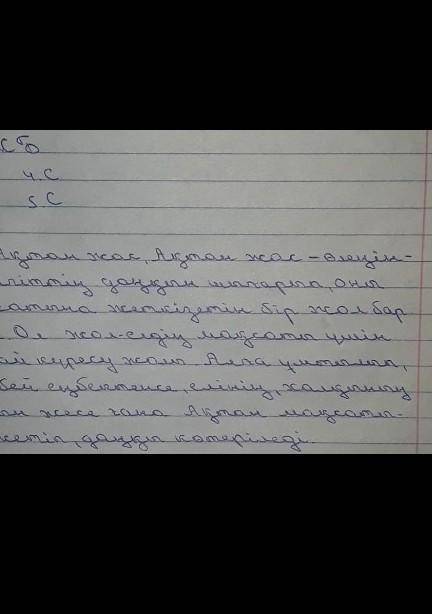 СБ
4. С
5. С
Ақтан жас, Ақтан жас – өлеңін-
гіттің даңқын шығарып, оны
сатына жеткізетін бір жол бар
. Ол жол-елдің мақсаты үшін
ай күресу жолы. Алға ұмтылып,
бей еңбектенсе, елінің, халқының
ын жесе ғана Ақтан мақсаты-
жетіп, даңқы көтеріледі.